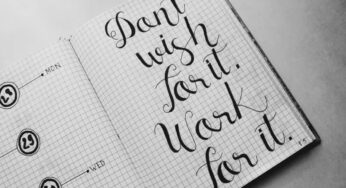 29
MON
29
WED
Dont
wish
for it.
Work
for it.